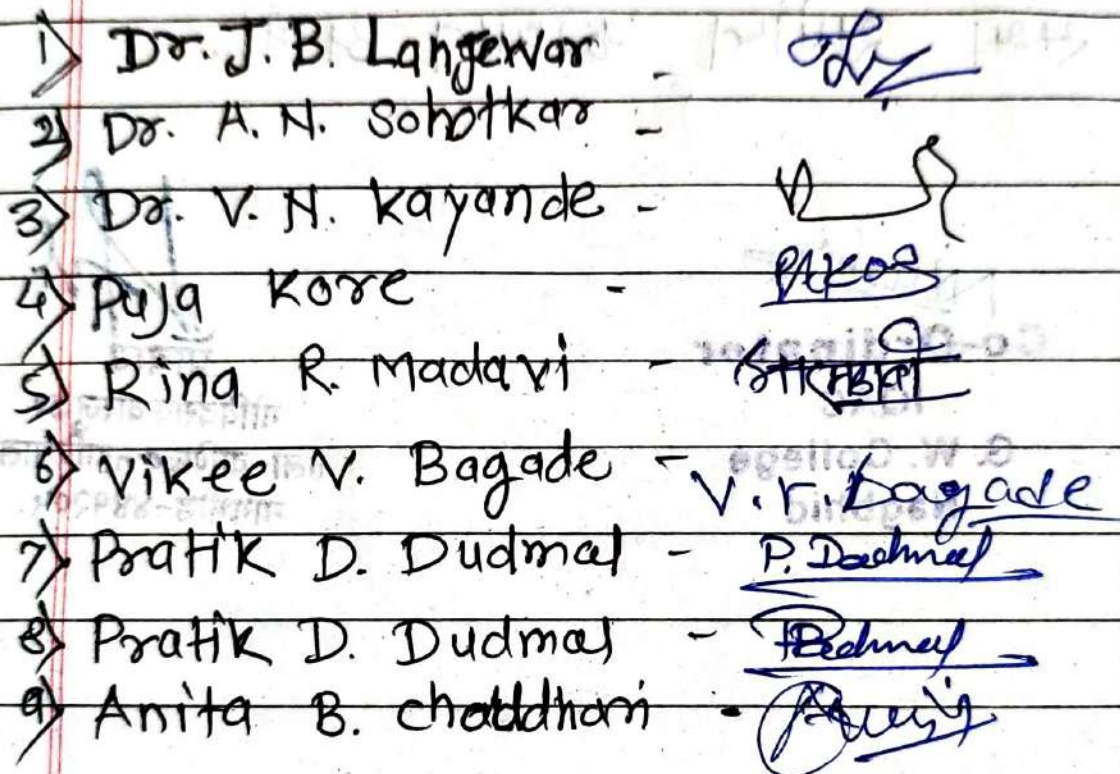 1) Dr. J. B. Langewar -
2) Dr. A. N. Sohotkar -
3) Dr. V. N. Kayande -
4) Puja Kore -
5) Rina R. Madavi -
6) Vikee V. Bagade - V. V. Bagade
7) Pratik D. Dudmal - P. Dudmal
8) Pratik D. Dudmal -
9) Anita B. -